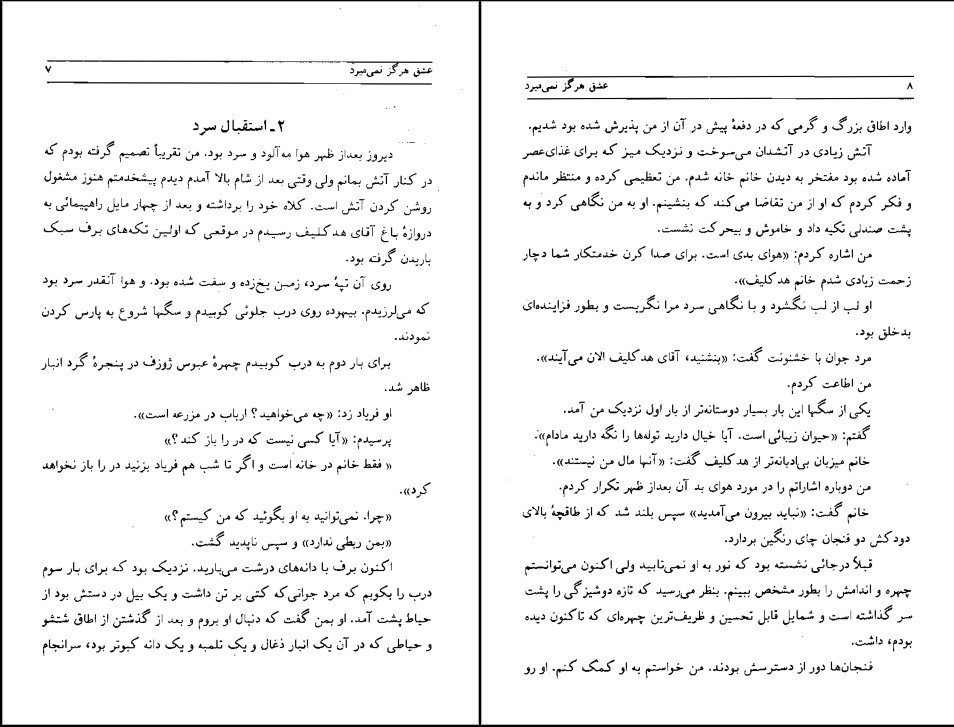 عشق هرگز نمی‌میرد ۷
۲ـ استقبال سرد
دیروز بعداز ظهر هوا مه‌آلود و سرد بود. من تقریباً تصمیم گرفته بودم که
در کنار آتش بمانم ولی وقتی بعد از شام بالا آمدم دیدم پیشخدمتم هنوز مشغول
روشن کردن آتش است. کلاه خود را برداشته و بعد از چهار مایل راهپیمائی به
دروازهٔ باغ آقای هدکلیف رسیدم در موقعی که اولین تکه‌های برف سبک
باریدن گرفته بود.
روی آن تپهٔ سرد، زمین یخ‌زده و سفت شده بود. و هوا آنقدر سرد بود
که می‌لرزیدم. بیهوده روی درب جلوئی کوبیدم و سگها شروع به پارس کردن
نمودند.
برای بار دوم به درب کوبیدم چهرهٔ عبوس ژوزف در پنجرهٔ گرد انبار
ظاهر شد.
او فریاد زد: «چه می‌خواهید؟ ارباب در مزرعه است».
پرسیدم: «آیا کسی نیست که در را باز کند؟»
« فقط خانم در خانه است و اگر تا شب هم فریاد بزنید در را باز نخواهد
کرد».
«چرا. نمی‌توانید به او بگوئید که من کیستم؟»
«بمن ربطی ندارد» و سپس ناپدید گشت.
اکنون برف با دانه‌های درشت می‌بارید. نزدیک بود که برای بار سوم
درب را بکوبم که مرد جوانی‌که کتی بر تن داشت و یک بیل در دستش بود از
حیاط پشت آمد. او بمن گفت که دنبال او بروم و بعد از گذشتن از اطاق شتشو
و حیاطی که در آن یک انبار ذغال و یک تلمبه و یک دانه کبوتر بود، سرانجام
۸ عشق هرگز نمی‌میرد
وارد اطاق بزرگ و گرمی که در دفعهٔ پیش در آن از من پذیرش شده بود شدیم.
آتش زیادی در آتشدان می‌سوخت و نزدیک میز که برای غذای‌عصر
آماده شده بود مفتخر به دیدن خانم خانه شدم. من تعظیمی کرده و منتظر ماندم
و فکر کردم که او از من تقاضا می‌کند که بنشینم. او به من نگاهی کرد و به
پشت صندلی تکیه داد و خاموش و بیحرکت نشست.
من اشاره کردم: «هوای بدی است. برای صدا کرن خدمتکار شما دچار
زحمت زیادی شدم خانم هدکلیف».
او لب از لب نگشود و با نگاهی سرد مرا نگریست و بطور فزاینده‌ای
بدخلق بود.
مرد جوان با خشنونت گفت: «بنشنید، آقای هدکلیف الان می‌آیند».
من اطاعت کردم.
یکی از سگها این بار بسیار دوستانه‌تر از بار اول نزدیک من آمد.
گفتم: «حیوان زیبائی است. آیا خیال دارید توله‌ها را نگه دارید مادام».
خانم میزبان بی‌ادبانه‌تر از هدکلیف گفت: «آنها مال من نیستند».
من دوباره اشاراتم را در مورد هوای بد آن بعداز ظهر تکرار کردم.
خانم گفت: «نباید بیرون می‌آمدید» سپس بلند شد که از طاقچهٔ بالای
دودکش دو فنجان چای رنگین بردارد.
قبلاً درجائی نشسته بود که نور به او نمی‌تابید ولی اکنون می‌توانستم
چهره و اندامش را بطور مشخص ببینم. بنظر می‌رسید که تازه دوشیزگی را پشت
سر گذاشته است و شمایل قابل تحسین و ظریف‌ترین چهره‌ای که تاکنون دیده
بودم، داشت.
فنجان‌ها دور از دسترسش بودند. من خواستم به او کمک کنم. او رو